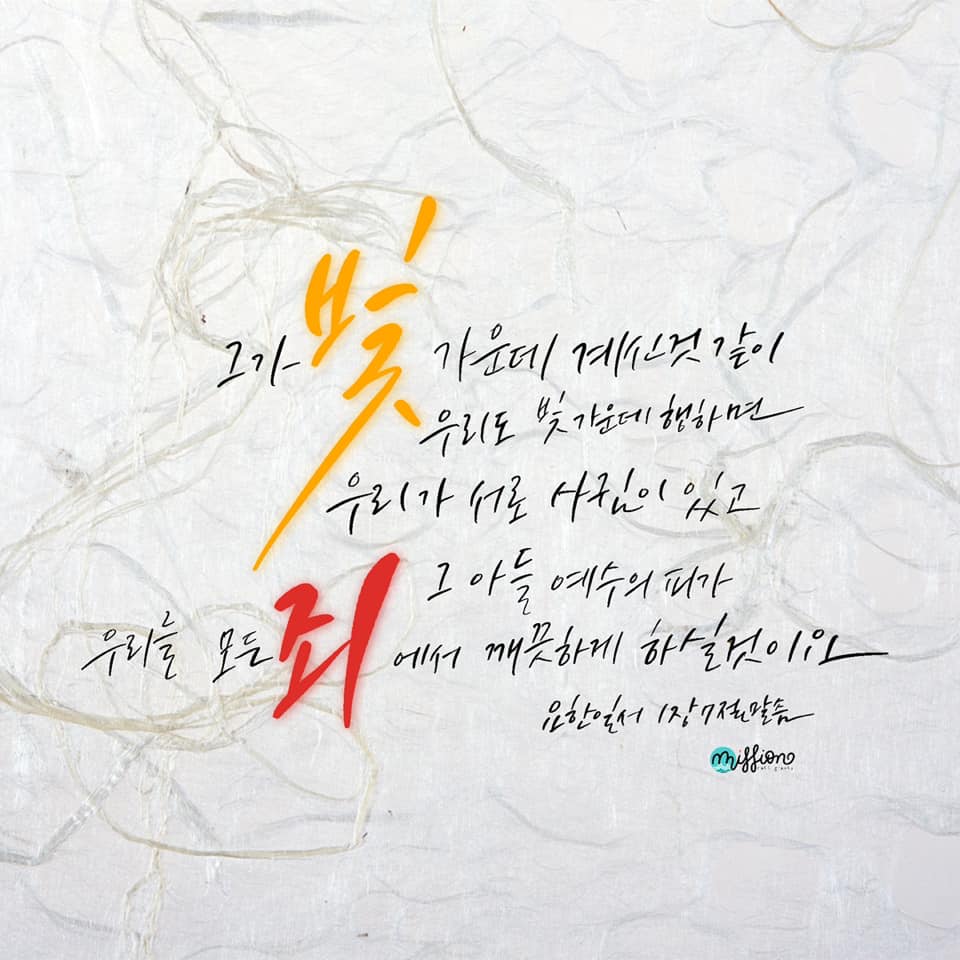 그가 빛 가운데 계신것 같이
우리도 빛 가운데 행하면
우리가 서로 사귐이 있고
그 아들 예수의 피가
우리를 모든 죄에서 깨끗하게 하실것이요
요한일서 1장 7절 말씀
mission